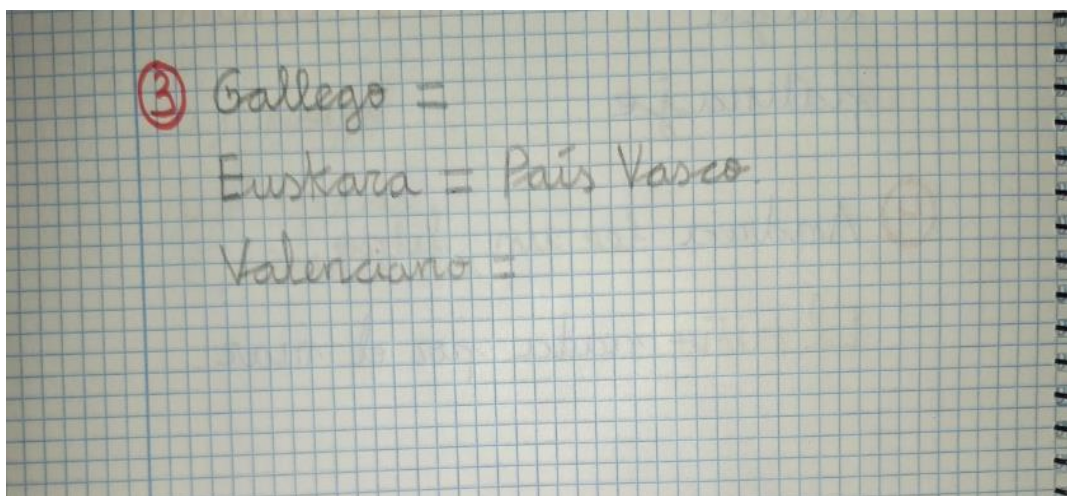 3 Gallego =
Euskara = País Vasco.
Valenciano =